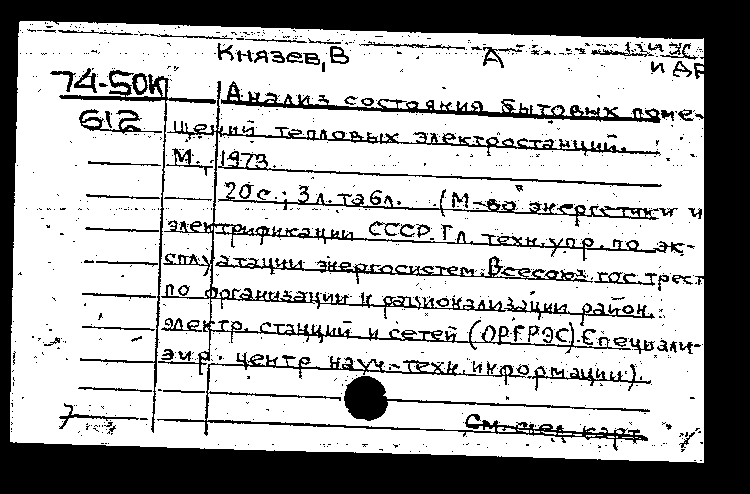 Князев, В А
и др
74-50К Анализ состояния бытовых поме-
612 щений тепловых электростанций.
М., 1973.
20 с.; 3 л. табл. (М-во энергетики и
электрификации СССР. Гл. техн. упр. по эк-
сплуатации энергосистем. Всесоюз. гос. трест
по организации и рационализации район.
электр. станций и сетей (ОРГРЭС). Специали-
зир. центр науч.-техн. информации).
См. след. карт.
7